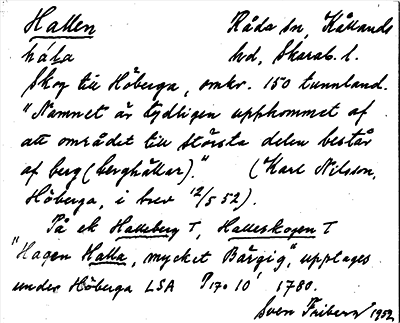 Hallen Råda sn, Kållands
hála hd, Skarab. l.
Skog till Höberga, omkr. 150 tunnland.
"Namnet är tydligen uppkommet af
att området till största delen består
af berg (berghällar)." (Karl Nilsson,
Höberga, i brev 12/5 52).
På ek Halleberg T, Halleskogen T
"Hagen Halla, mycket Bärgig", upptages
under Höberga LSA P170 10¹ 1780.
Sven Fribern 1952